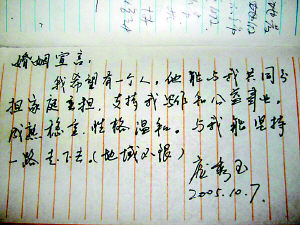 婚姻宣言:
我希望有一个人。他能与我共同分
担家庭重担。支持我写作和公益事业。
成熟稳重。性格温和。与我能坚持
一路走下去。(地域不限)
2005.10.7.